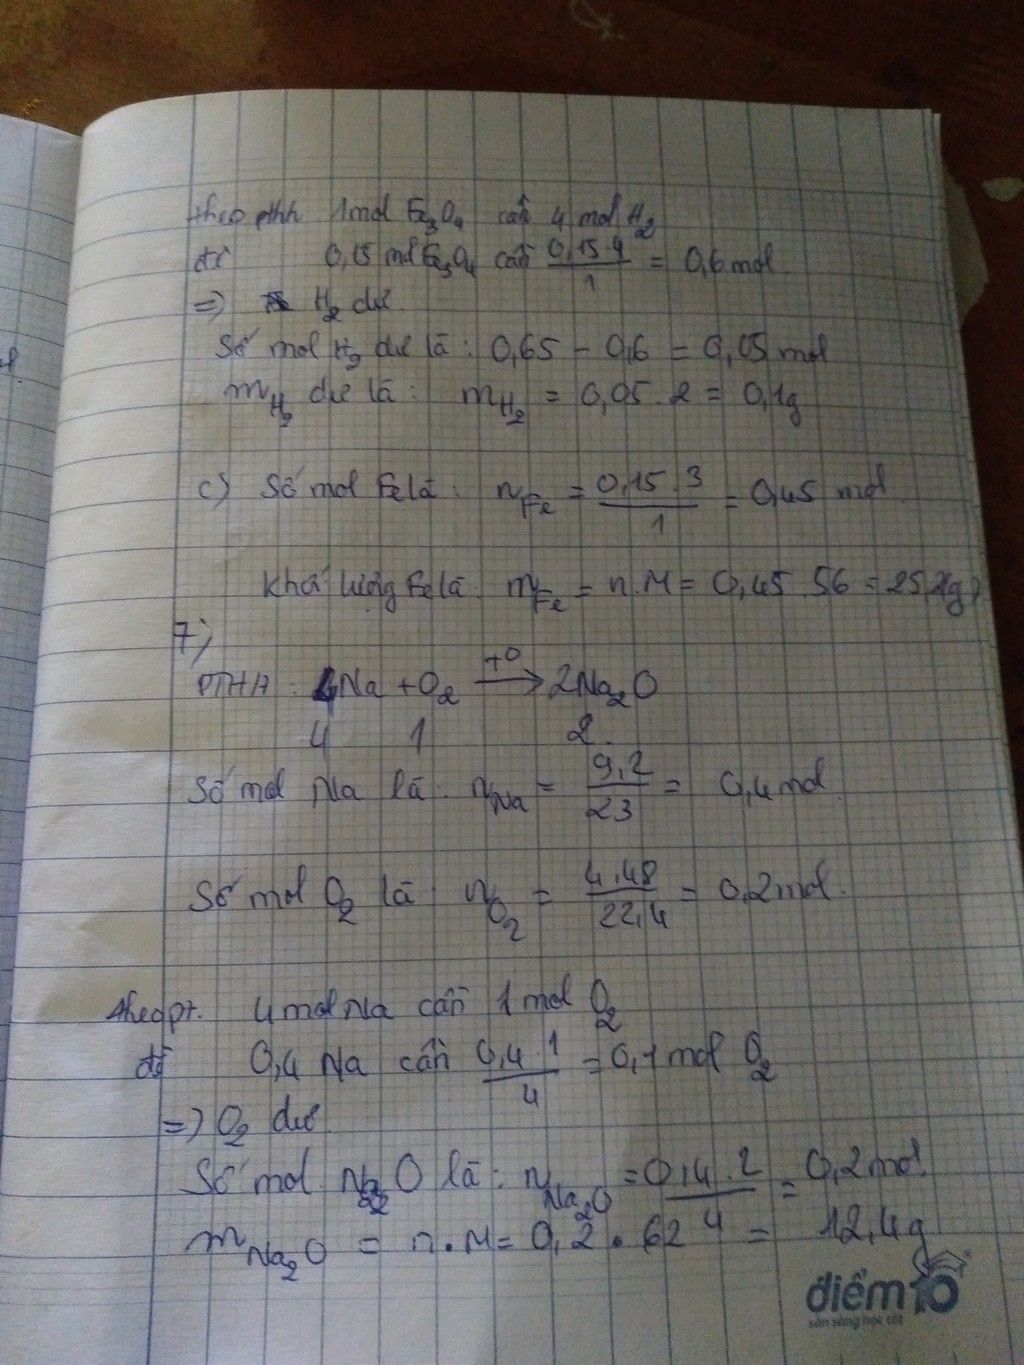 theo pthh 1mol Fe3O4 cần 4 mol H2
đề 0,15 mol Fe3O4 cần 0,15.4/1 = 0,6 mol
=> H2 dư.
Số mol H2 dư là: 0,65 - 0,6 = 0,05 mol
mH2 dư là: mH2 = 0,05.2 = 0,1g
c) Số mol Fe là: nFe = 0,15.3/1 = 0,45 mol.
Khối lượng Fe là: mFe = n.M = 0,45.56 = 25,2(g)
7)
PTHH: 4Na + O2 →(t0) 2Na2O
4 1 2.
Số mol Na là: nNa = 9,2/23 = 0,4 mol.
Số mol O2 là: nO2 = 4,48/22,4 = 0,2 mol.
theo pt. 4 mol Na cần 1 mol O2
đề 0,4 Na cần 0,4.1/4 = 0,1 mol O2
=> O2 dư
Số mol Na2O là: nNa2O = 0,4.2/4 = 0,2 mol.
mNa2O = n.M = 0,2.62 = 12,4g
điểm10
sẵn sàng học tốt